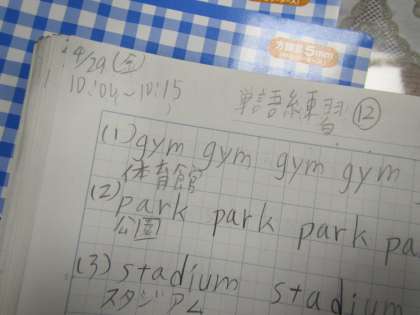 方眼罫5mm
4/29(金)
10:04~10:15
単語練習 ⑫
(1) gym gym gym gym
体育館
(2) park park park pa
公園
(3) stadium stadium
スタジアム